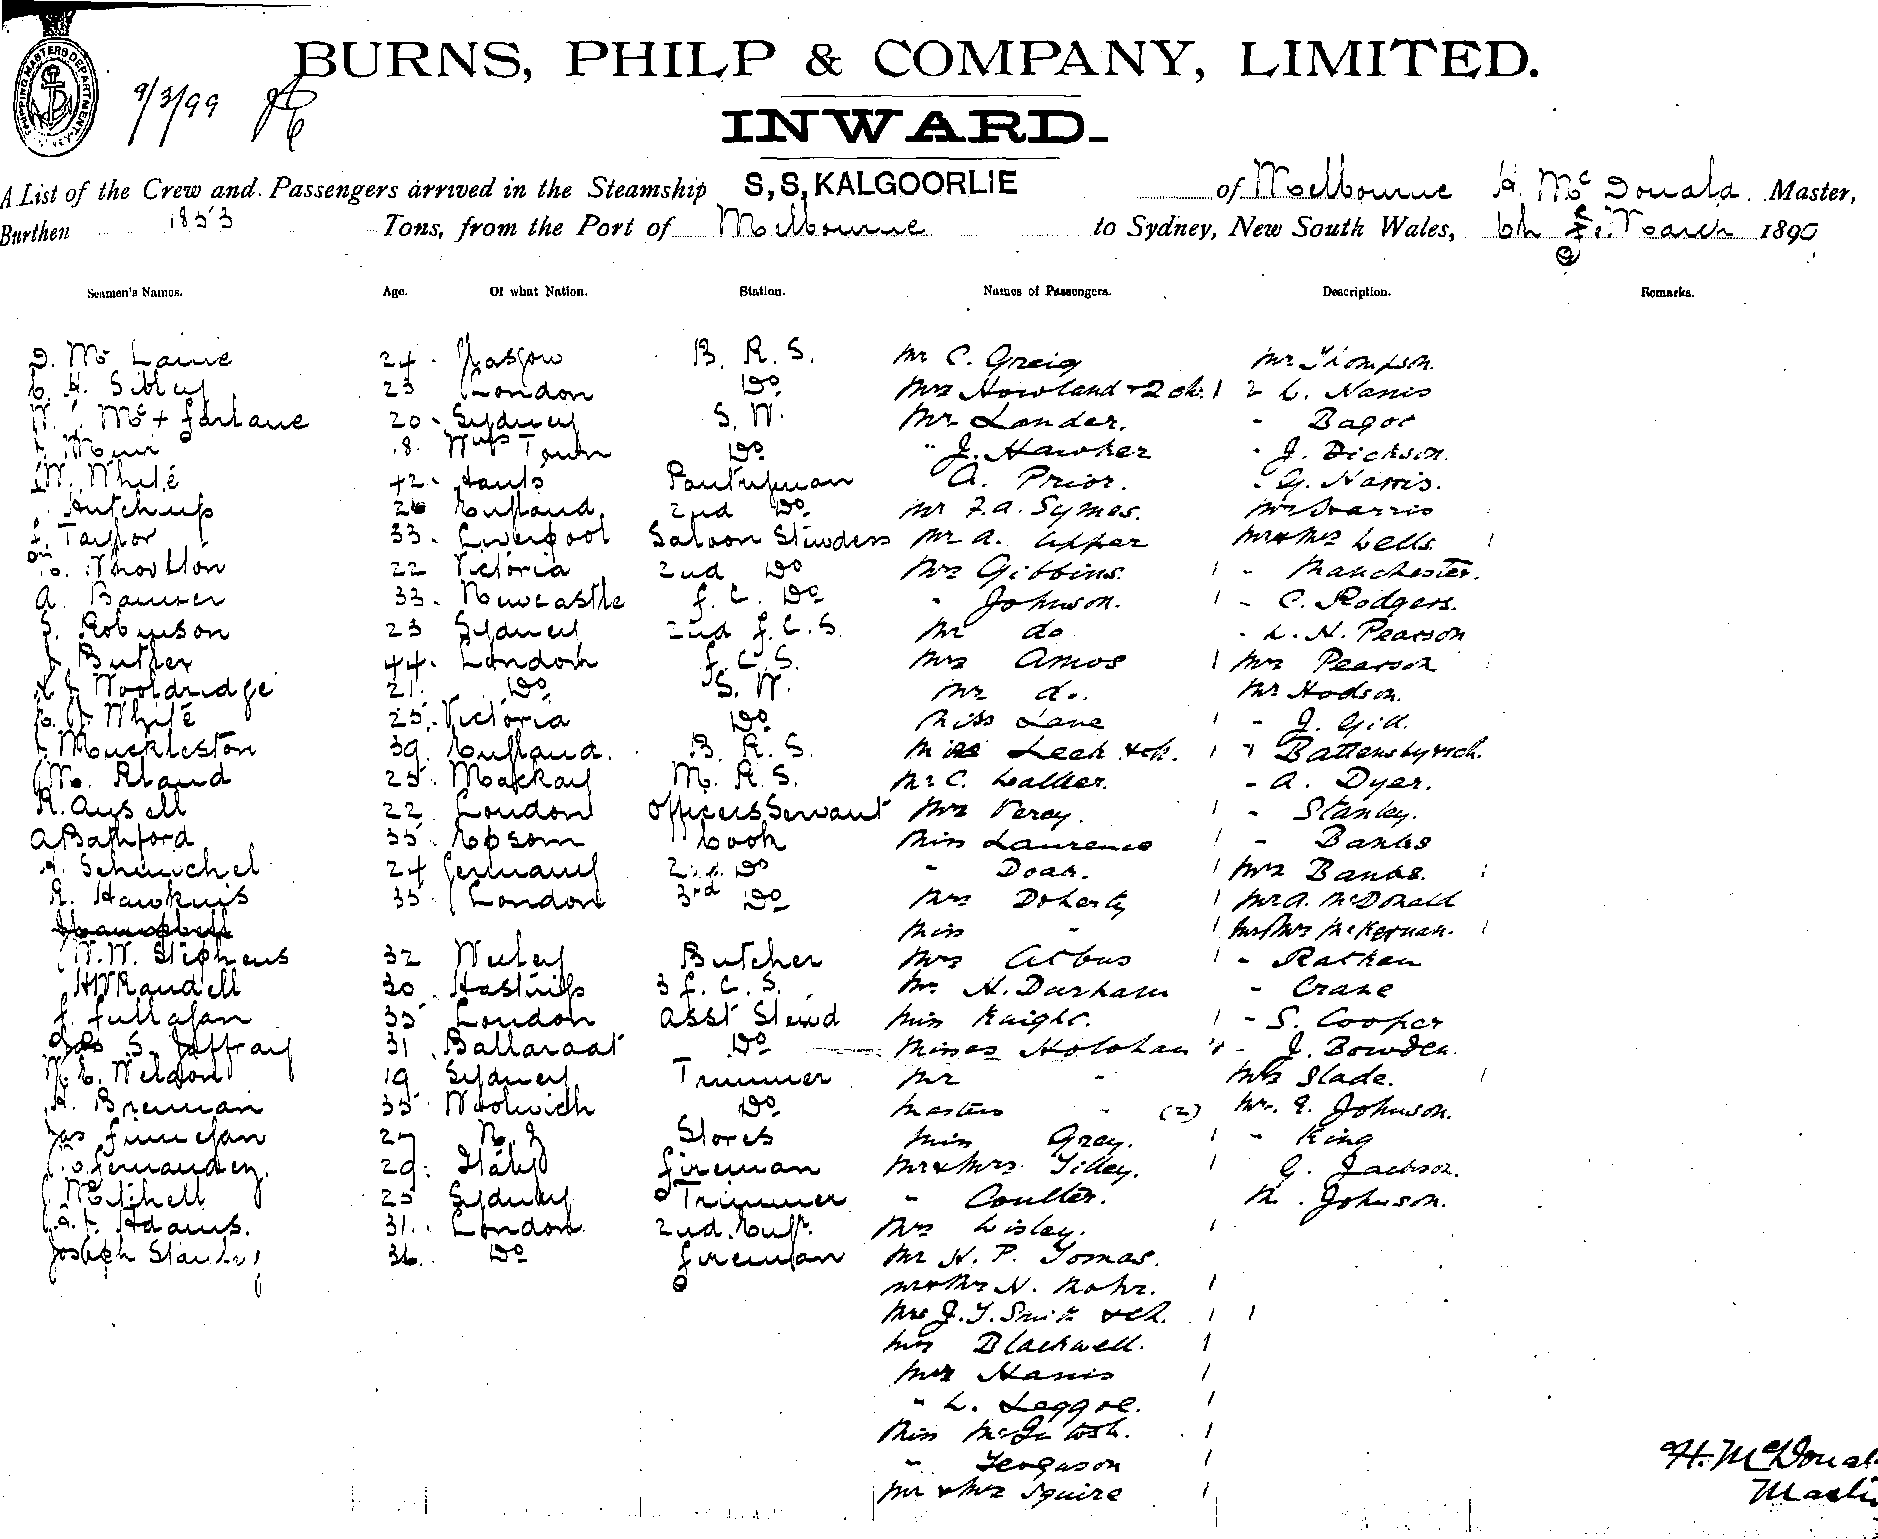 BURNS, PHILP & COMPANY, LIMITED.
9/3/99
INWARD.
A List of the Crew and Passengers arrived in the Steamship S,S,KALGOORLIE of Melbourne H. McDonald Master,
Burthen 1853 Tons, from the Port of Melbourne to Sydney, New South Wales, 6th March 189
Seamen's Names. Age. Of what Nation. Station. Names of Passengers. Description. Remarks.
24 Glasgow B. R. S. Mr C. Greig Mr Thompson.
C. H. Sibley 23 London Do Mrs Howland & 2 ch. 1 2 L. Harris
20 Sydney S. W. Mr Lander. " Bagot
Muir 18 Wms Town Do " J. Hawker " J. Dickson.
W. White 42 Hants Pantryman A. Prior. " G. Harris.
Hutchings 26 England 2nd Do Mr F. A. Symes.
Taylor 33 Liverpool Saloon Stewdess Mr A. Upper Mr & Mrs Wells 1
Thornton 22 Victoria 2nd Do Mrs Gibbins 1 " Manchester.
A. Banner 33 Newcastle F. C. Do " Johnson. 1 " C. Rodgers.
Robinson 23 Sydney 2nd F. C. S. Mr do " L. H. Pearson
Butler 44 London F. C. S. Mrs Amos 1 Mrs Pearson
Wooldridge 21 Do S. W. Mr do. Mr Hodson.
White 25 Victoria Do Miss Lane 1 " J. Gid.
Muckleston 39 England. B. R. S. Leek & ch. 1 1 Battensby & ch.
Rland 25 Mackay M. R. S. Mr C. Walker. " A. Dyer.
R. Angell 22 London Officers Servant Mrs Percy. 1 " Stanley.
A Bamford 35 Epsom Cook Miss Laurence 1 " Banks
24 Germany 2nd Do " Doak. 1 Mrs Banks.
R. Hawkins 35 London 3rd Do Mrs Doherty 1 Mr A. McDonald
Miss " 1 Mr & Mrs McKernan. 1
W. W. Stephens 32 Butcher Mrs 1 "
H W Randell 30 Hastings 3 F. C. S. Mr H. Durham " Crane
J. Fullagan 35 London Asst Stewd Miss Knight. 1 " S. Cooper
Jas S. Jaffray 31 Ballaraat Do Misses Holohan " J. Bowden.
W. E. Weldon 19 Sydney Trimmer Mr " Mrs Slade. 1
Brennan 35 Woolwich Do Masters " (2) Mr. E. Johnson.
Jas Finnegan 27 N. Z Stores Miss Gray. 1 " King
Fernandez. 29 Italy Fireman Mr & Mrs Tilley. 1 G. Jackson.
Mitchell 25 Sydney Trimmer " Coulter. Johnson.
Adams. 31 London 2nd Mrs Wisley. 1
Joseph 36 Do Fireman Mr H. P. Tomas.
Mr & Mrs N. Mohr. 1
Mrs J. T. Smith & ch. 1 1
Blackwell. 1
Mrs Harris 1
" L. Leggoe. 1
Miss McIntosh. 1
" Ferguson 1
Mr & Mrs Squire 1
H. McDonal